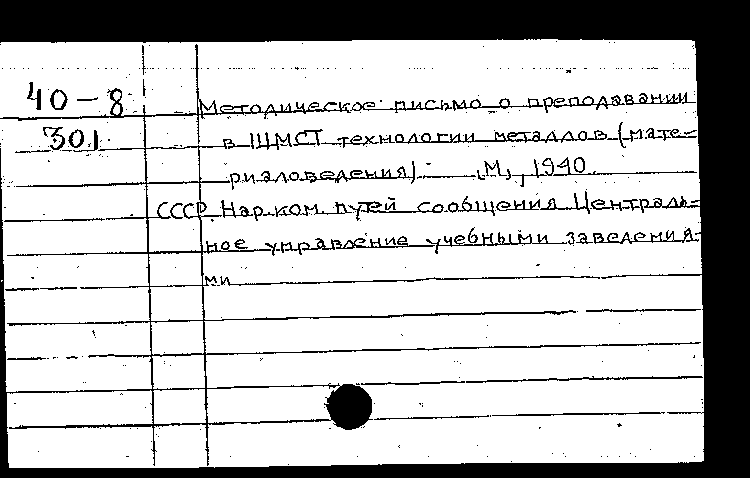 40-8 Методическое письмо о преподавании
301 в ШМСТ технологии металлов (мате-
риаловедения). М., 1940.
СССР. Нар. ком. путей сообщения Централь-
ное управление учебными заведения-
ми